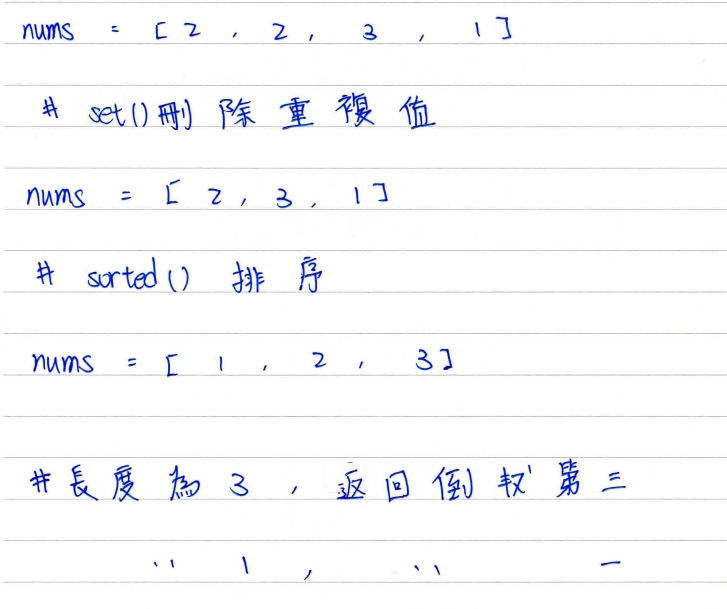 nums = [ 2 , 2 , 3 , 1 ]
# set() 刪除重複值
nums = [ 2 , 3 , 1 ]
# sorted() 排序
nums = [ 1 , 2 , 3 ]
# 長度為 3 , 返回倒數第三
〃 1 , 〃 一